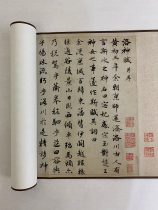 洛神賦 并序
黃初三年余朝京師還濟洛川古人有
言斯水之神名曰宓妃感宋玉對楚王
神女之事遂作斯賦其詞曰
余從京師言歸東藩背伊闕越轘轅
經通谷陵景山日既西傾車殆馬煩爾
乃稅駕乎蘅皋秣駟乎芝田容與
乎陽林流眄乎洛川於是精移神